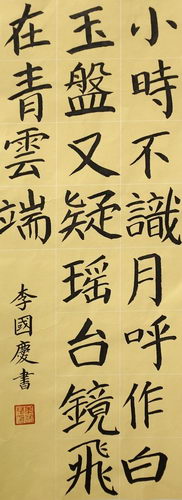 小時不識月呼作白
玉盤又疑瑶台鏡飛
在青雲端
李國慶書